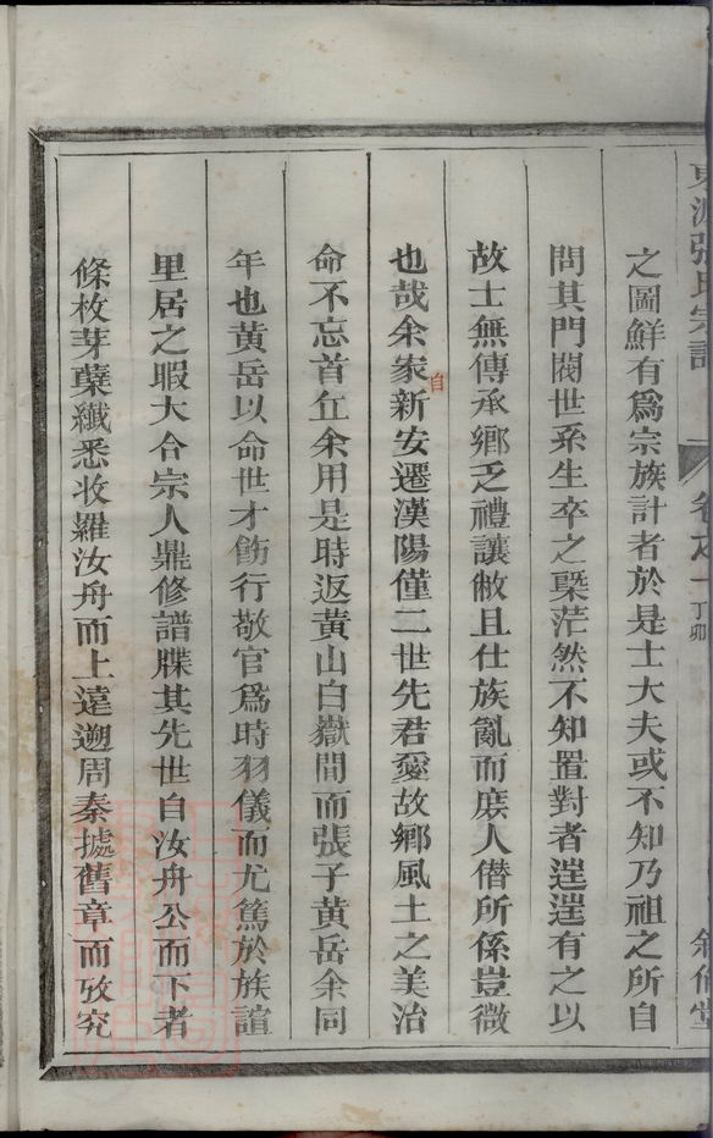 東源張氏宗譜
卷之一
丁卯
之圖鮮有爲宗族計者於是士大夫或不知乃祖之所自
問其門閥世系生卒之槩茫然不知置對者逞逞有之以
故士無傳承鄉乏禮讓敝且仕族亂而庶人僭所係豈微
也哉余家新安遷漢陽僅二世先君愛故鄉風土之美治
自
命不忘首丘余用是時返黄山白嶽間而張子黄岳余同
年也黄岳以命世才飭行敬官爲時羽儀而尤篤於族誼
里居之暇大合宗人鼎修譜牒其先世自汝舟公而下者
條枚芽蘖纖悉收羅汝舟而上遠遡周秦據舊章而攷究